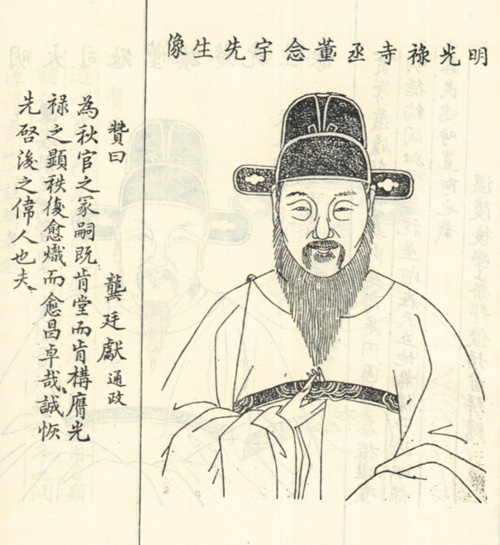 明光祿寺丞董念宇先生像
贊曰 龔廷獻通政
為秋官之冢嗣既肯堂而肯構膺光
祿之顯秩復愈熾而愈昌卓哉誠恢
先啓後之偉人也夫